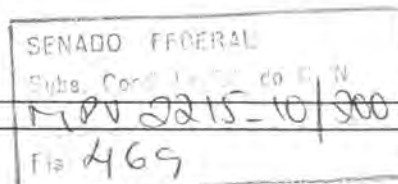 SENADO FEDERAL
Subs. Coord. do C. N.
MPV 2215-10/200
Fls 469